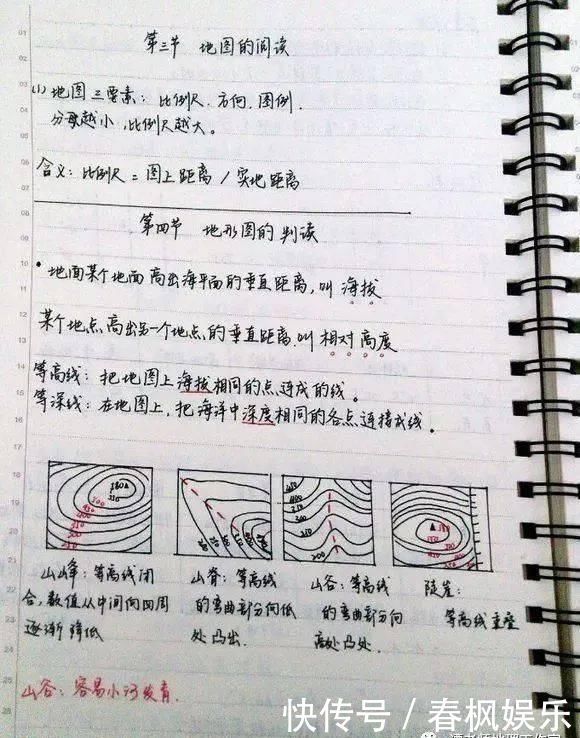 第三节 地图的阅读
(1) 地图三要素：比例尺、方向、图例.
分母越小，比例尺越大。
含义：比例尺 = 图上距离 / 实地距离
第四节 地形图的判读
• 地面某个地面高出海平面的垂直距离，叫海拔
某个地点高出另一个地点的垂直距离.叫相对高度
等高线：把地图上海拔相同的点连成的线。
等深线：在地图上，把海洋中深度相同的各点连接成线。
山峰：等高线闭
合，数值从中间向四周
逐渐降低
山脊：等高线
的弯曲部分向低
处凸出.
山谷：等高线
的弯曲部分向
高处凸处.
陡崖：
等高线重叠
山谷：容易小河发育.
快传号 / 春枫娱乐